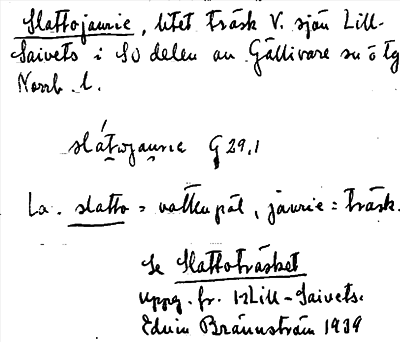 Slattojaurie, litet träsk V. sjön Lill-
Saivets i SO delen av Gällivare sn ö tg
Norrb. l.
slátwojaurie G 29,1
La. slatto = vattenpöl, jaurie = träsk.
Se Slattoträsket
Uppg. fr. Lill-Saivets.
Edvin Brännström 1939